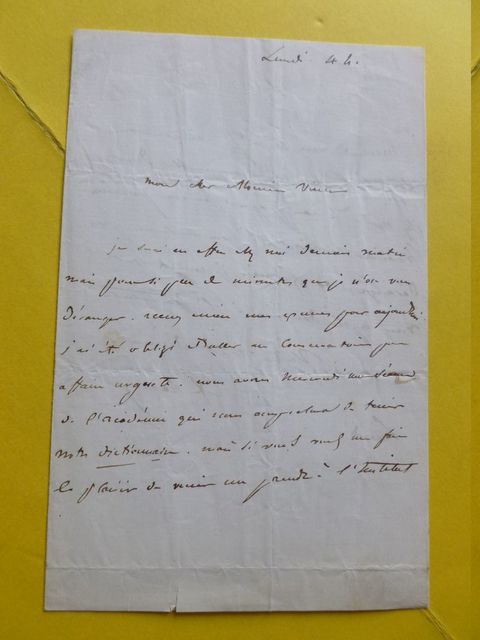 Lundi 4 h.
mon cher Monsieur
je suis en effet chez moi demain matin
mais pour si peu de minutes que je n'ose vous
déranger. recevez mes excuses pour aujourd'hui
j'ai été obligé d'aller au Conservatoire pour
affaire urgente. nous avons mercredi une séance
de l'académie qui nous empêchera de tenir
notre dictionnaire. mais si vous voulez me faire
le plaisir de venir me prendre à l'Institut